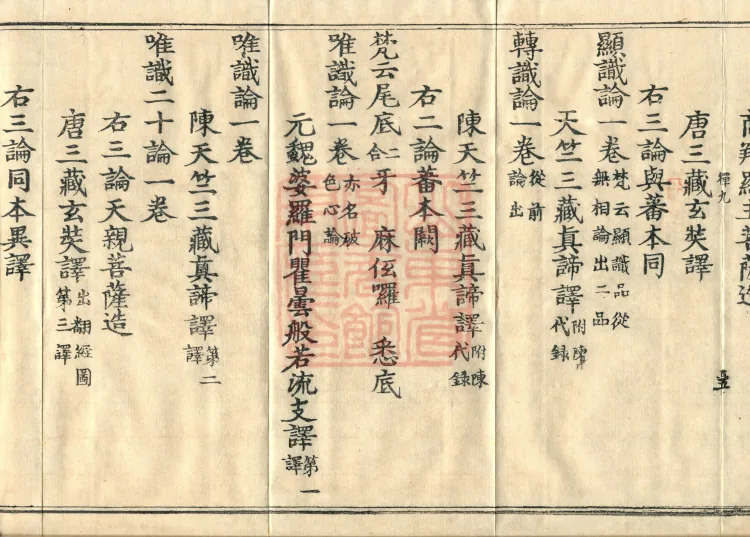 羅主菩薩造
禪九
五
唐三藏玄奘譯
右三論與蕃本同
顯識論一卷 梵云顯識品從無相論出二品
天竺三藏眞諦譯 附陳代録
轉識論一卷 從前論出
陳天竺三藏眞諦譯 附陳代録
右二論蕃本闕
梵云尾底二合牙 麻伭囉 悉底
唯識論一卷 亦名破色心論
元魏婆羅門瞿曇般若流支譯 第一譯
唯識論一卷
陳天竺三藏眞諦譯 第二譯
唯識二十論一卷
右三論天親菩薩造
唐三藏玄奘譯 出翻經圖第三譯
右三論同本異譯